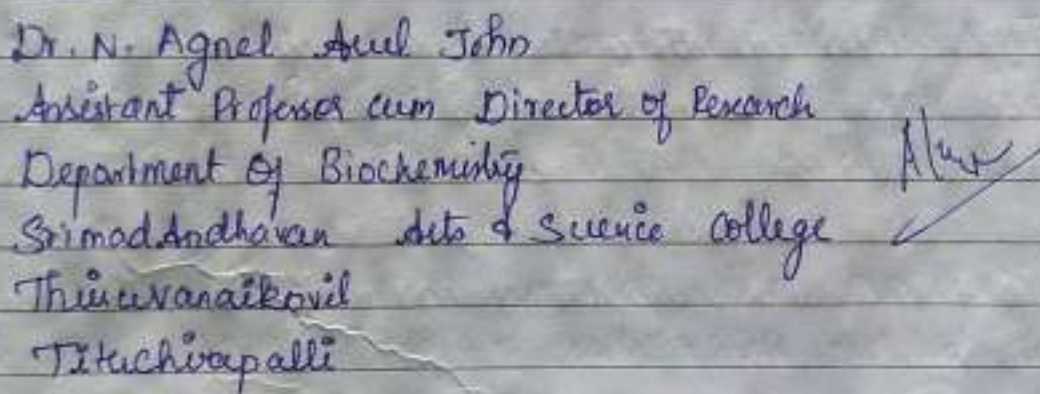 Dr. N. Agnel Arul John
Assistant Professor cum Director of Research
Department of Biochemistry
Srimad Andhavan Arts & Science College
Thiruvanaikovil
Tiruchirapalli